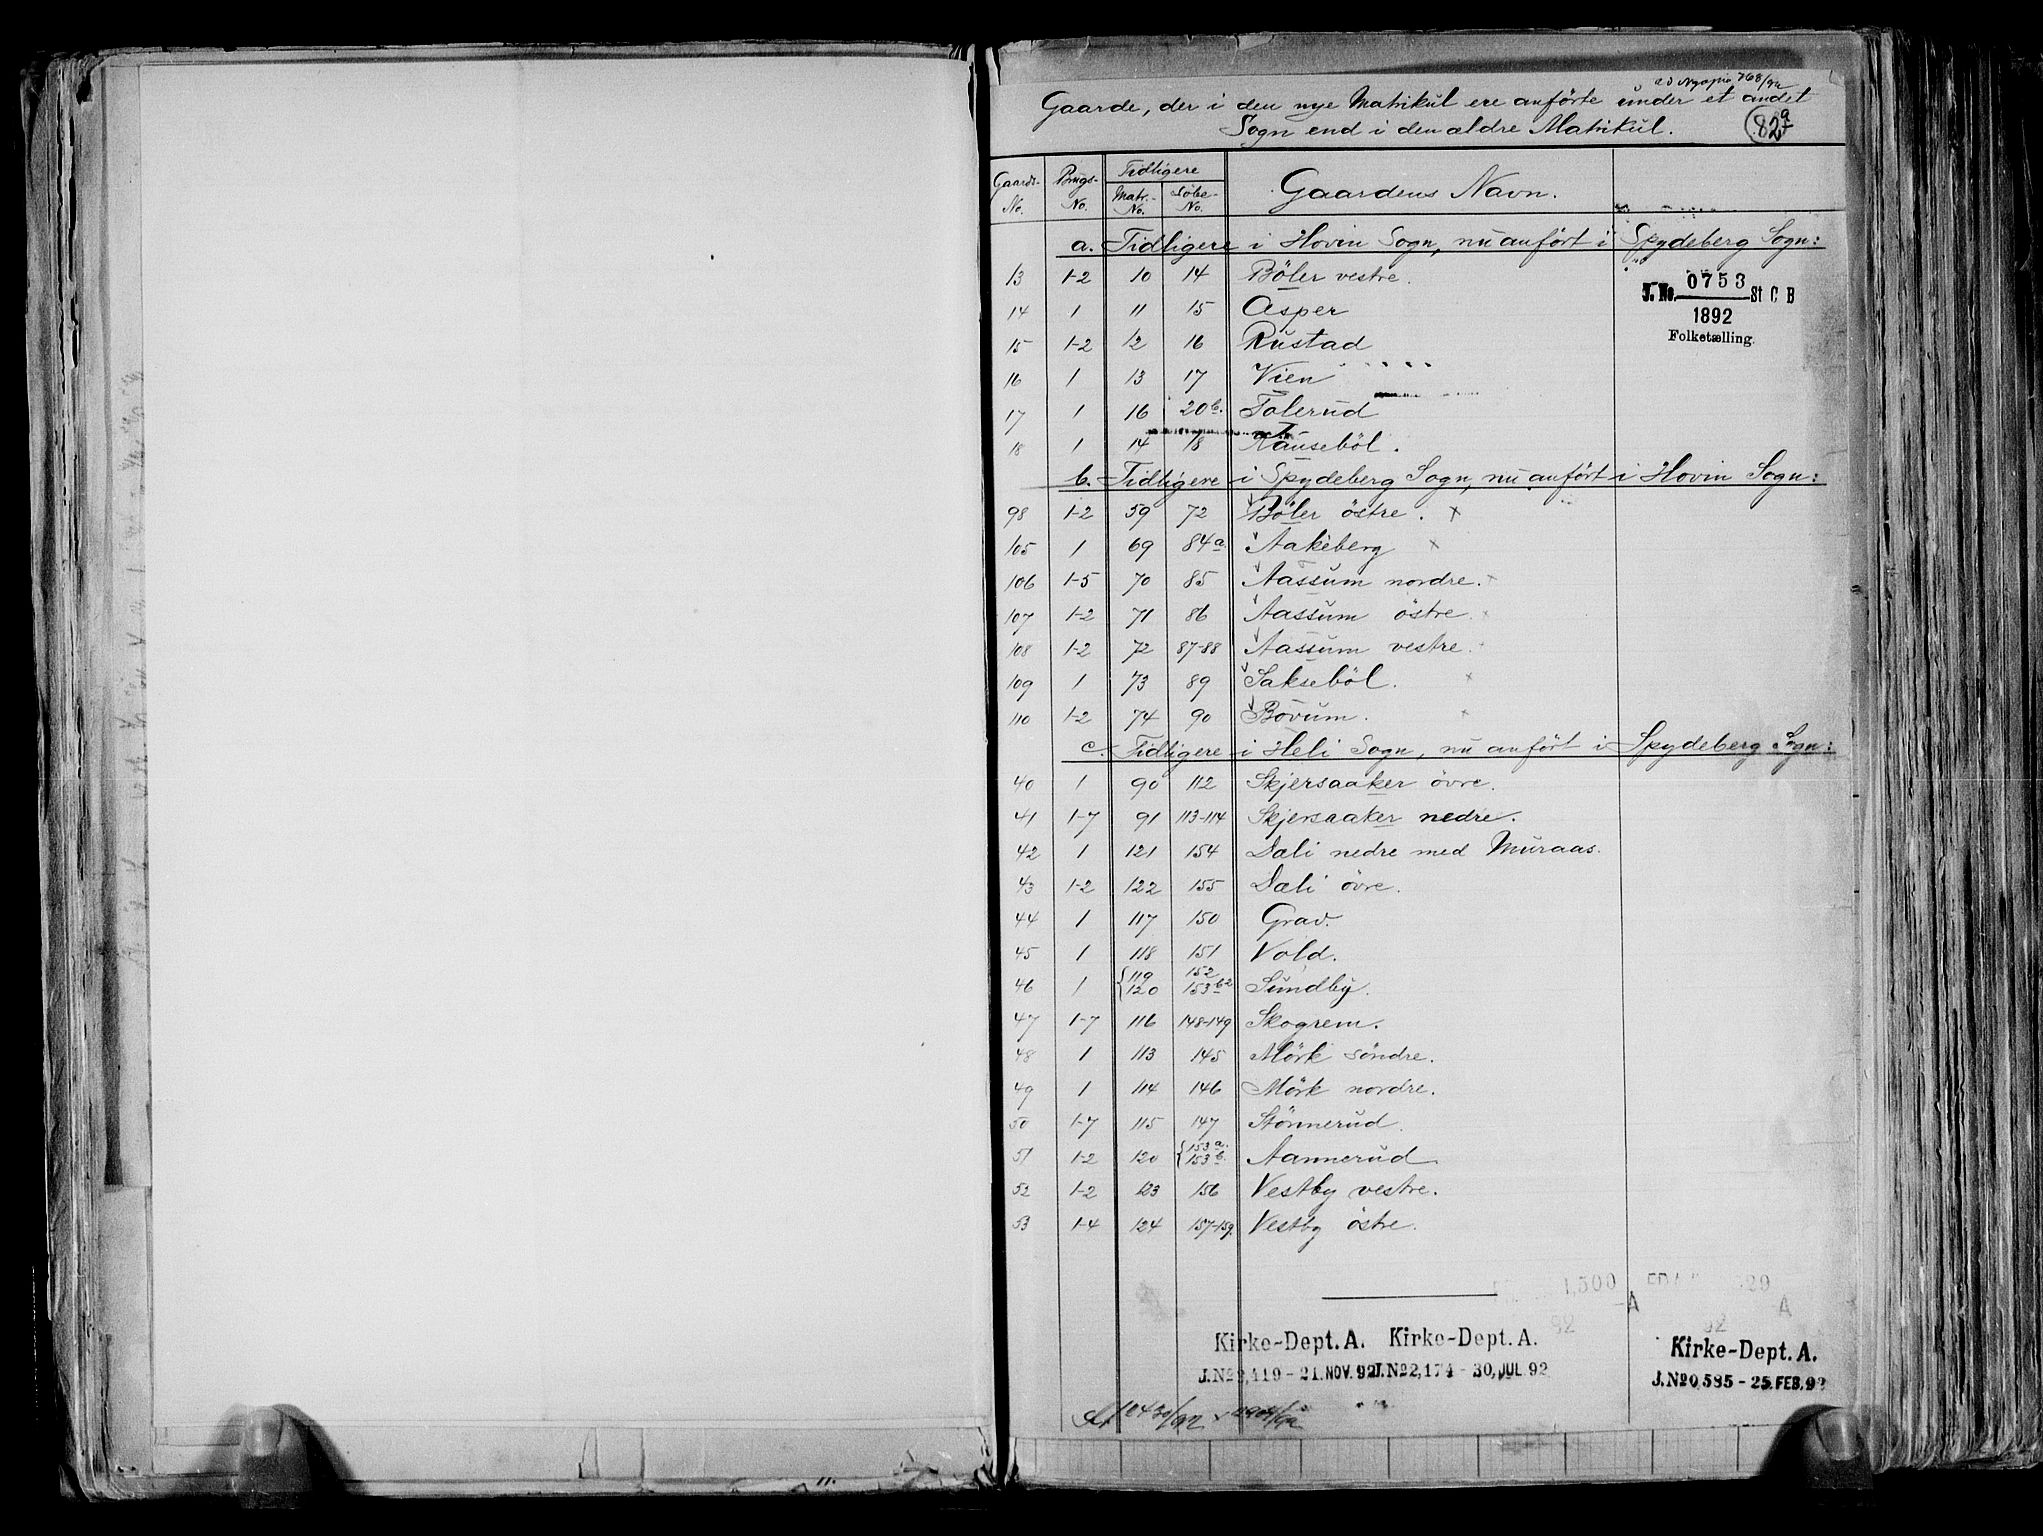 768/92
Gaarde, der i den nye Matrikul ere anförte under et andet
Sogn end i den ældre Matrikul.
82a
Gaards-No. Brugs-No. Tidligere Matr.-No. Löbe-No. Gaardens Navn.
a. Tidligere i Hovin Sogn, nu anfört i Spydeberg Sogn:
13 1-2 10 14 Böler vestre.
J. No. 0753 St C B
1892
Folketælling.
14 1 11 15 Asper
15 1-2 12 16 Rustad
16 1 13 17 Vien
17 1 16 20b. Tolerud
18 1 14 18 Kauseböl.
b. Tidligere i Spydeberg Sogn, nu anfört i Hovin Sogn:
98 1-2 59 72 Böler östre. x
105 1 69 84a Aakeberg x
106 1-5 70 85 Aassum nordre. x
107 1-2 71 86 Aassum östre. x
108 1-2 72 87-88 Aassum vestre. x
109 1 73 89 Sakseböl. x
110 1-2 74 90 Bovum. x
c. Tidligere i Heli Sogn, nu anfört i Spydeberg Sogn:
40 1 90 112 Skjersaaker övre.
41 1-7 91 113-114 Skjersaaker nedre.
42 1 121 154 Dæli nedre med Muraas.
43 1-2 122 155 Dæli övre.
44 1 117 150 Grav.
45 1 118 151 Vold.
46 1 {119 120 152 153b2 Sundby.
47 1-7 116 148-149 Skogrem.
48 1 113 145 Mörk söndre.
49 1 114 146 Mörk nordre.
50 1-7 115 147 Stönnerud.
51 1-2 120 {153a. 153b. Aannerud
52 1-2 123 156 Vestby vestre.
53 1-4 124 157-159. Vestby östre.
Kirke-Dept. A. Kirke-Dept. A. Kirke-Dept. A.
21. NOV. 92 J. No 2,174 - 30, JUL 92 J. No 0,585 - 25 FEB. 92